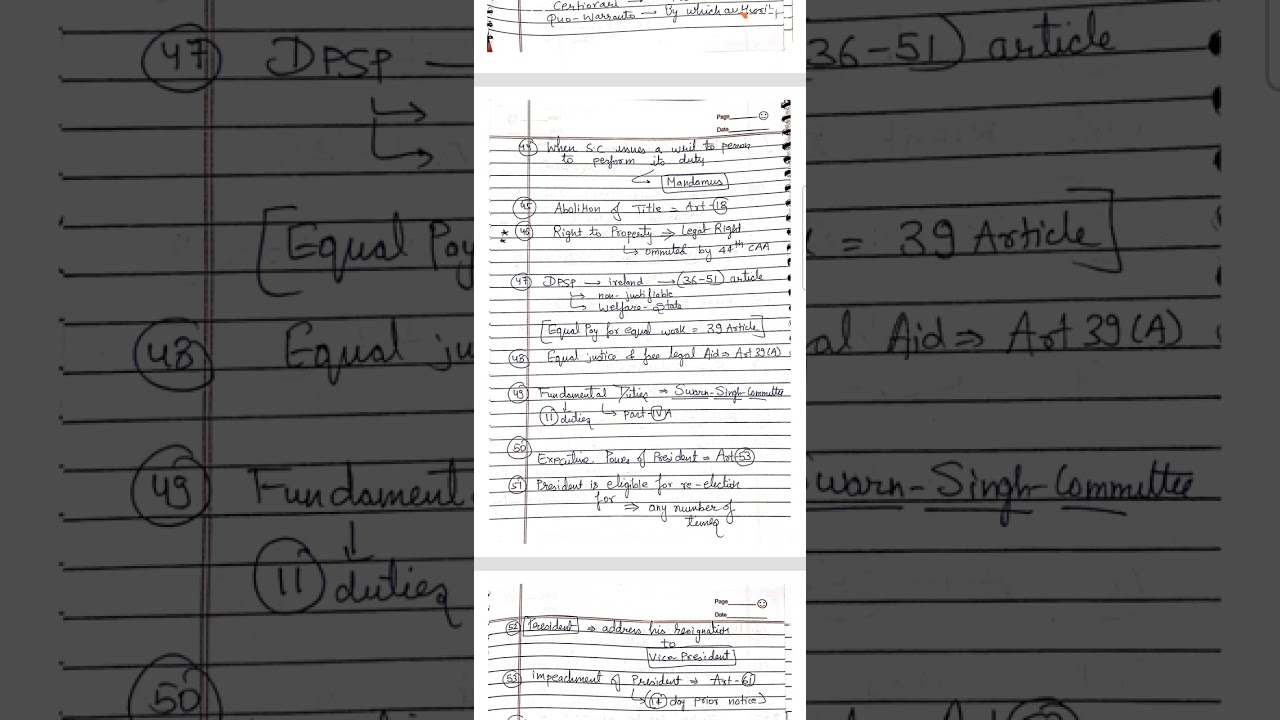 Certiorari
Quo-Warranto → By which authority
Page
Date
44 When S.C issues a writ to person
to perform its duty
Mandamus
45 Abolition of Title = Art-18
46 Right to Property → Legal Right
→ ommuted by 44th CAA
47 DPSP → ireland → (36-51) article
→ non-justifiable
→ Welfare-State
[Equal Pay for equal work = 39 Article]
48 Equal justice & free legal Aid ⇒ Art 39(A)
49 Fundamental Duties ⇒ Swarn-Singh-Committee
11 duties → part-IVA
50 Executive Power of President ⇒ Art 53
51 President is eligible for re-election
for ⇒ any number of
times
Page
Date
52 President ⇒ address his resignation
to
Vice-President
53 impeachment of President ⇒ Art-61
→ (14 day prior notice)
47 DPSP
36-51) article
[Equal Pay
= 39 Article]
48 Equal ju
al Aid ⇒ Art 39(A)
49 Fundament
Swarn-Singh-Committee
11 duties
50